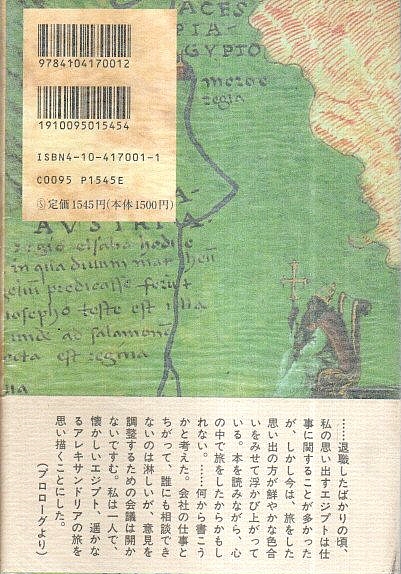 ACES
PTA-
GYPTO
meroe
regia
9784104170012
1910095015454
ISBN4-10-417001-1
C0095 P1545E
Ⓢ定価1545円(本体1500円)
regio elsaba hodie
in qua divum mat
predicasse
iosepho teste est illa
ad
ecta est regina
……退職したばかりの頃、
私の思い出すエジプトは仕
事に関することが多かった
が、しかし今は、旅をした
思い出の方が鮮やかな色合
いをみせて浮かび上がって
いる。本を読みながら、心
の中で旅をしたからかもし
れない。……何から書こう
かと考えた。会社の仕事と
ちがって、誰にも相談でき
ないのは淋しいが、意見を
調整するための会議は開か
ないですむ。私は一人で、
懐かしいエジプト、遥かな
るアレキサンドリアの旅を
思い描くことにした。
(プロローグより)